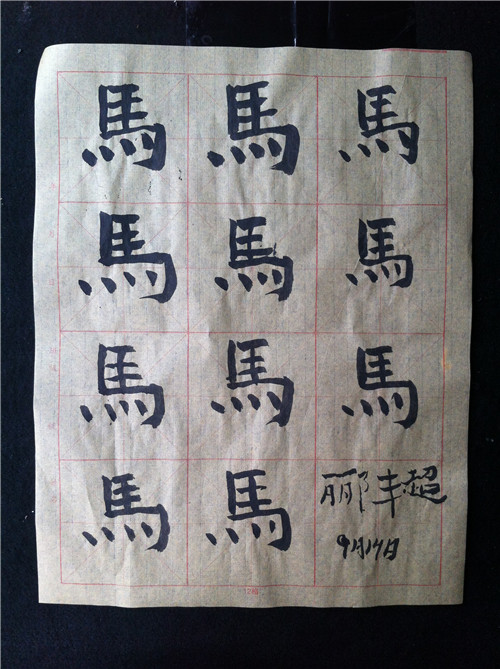 馬 馬 馬
馬 馬 馬
馬 馬 馬
馬 馬 郦丰超
9月17日